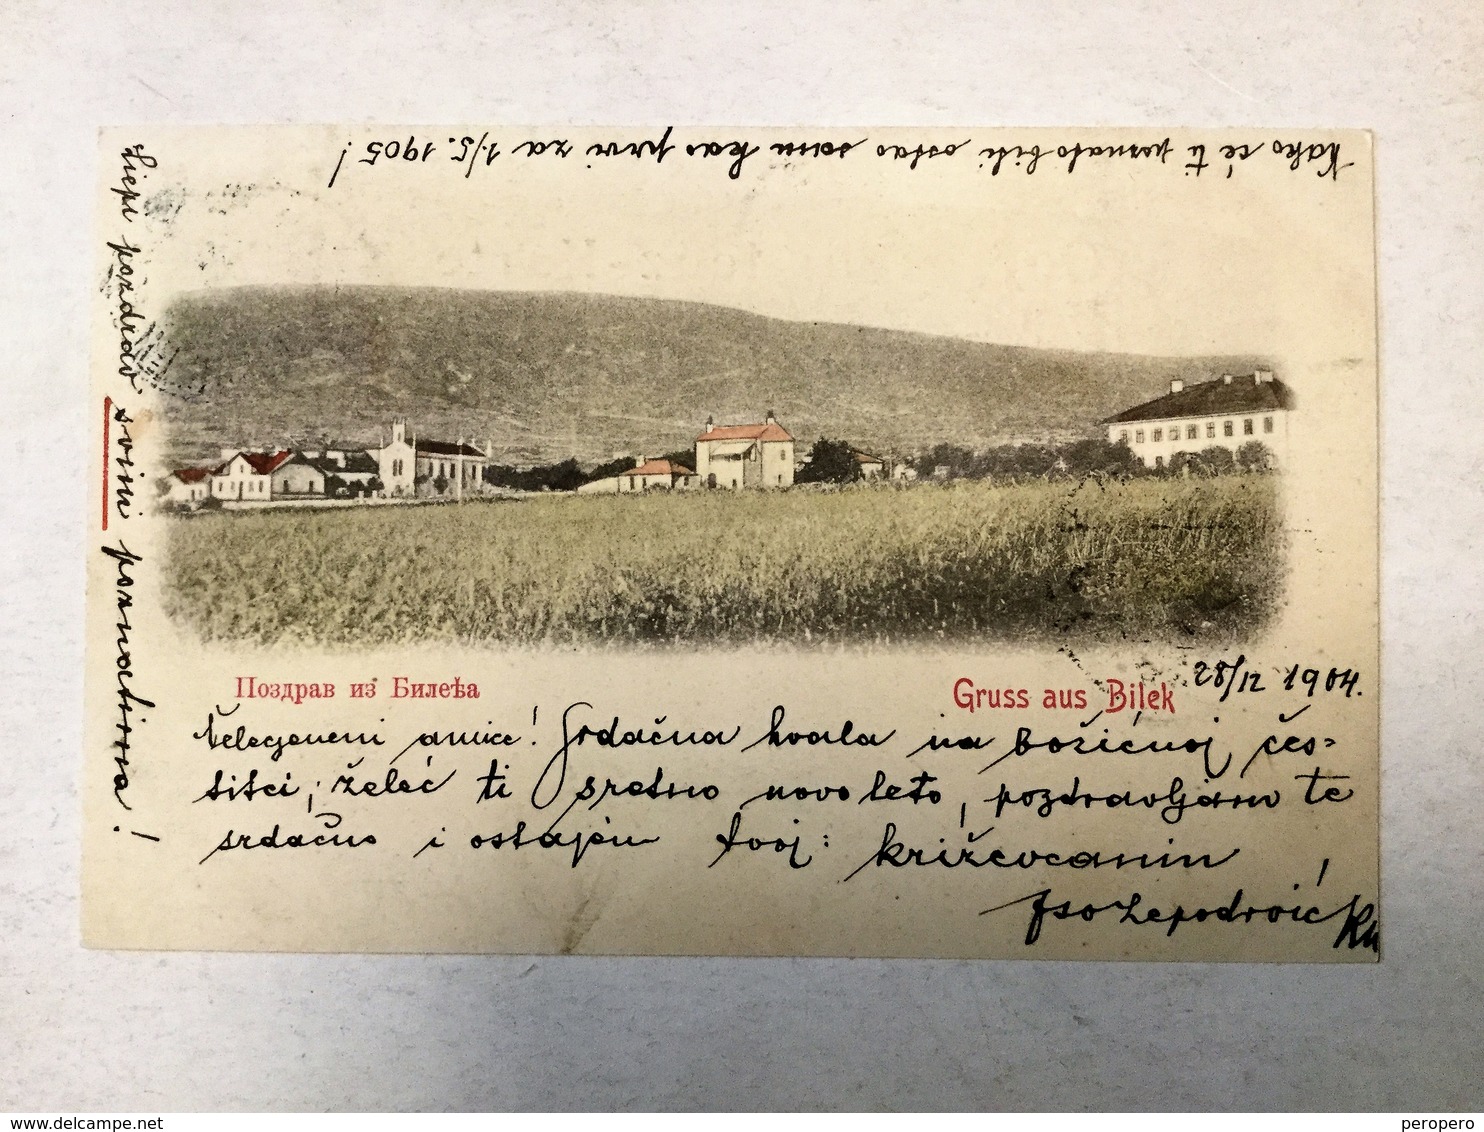 Kako će ti poznato biti, ostao sam kao prvi za 1./5. 1905!
Liepi pozdrav svim poznatima!
Поздрав из Билећа
Gruss aus Bilek
28/12 1904.
amice! Srdačna hvala na božićnoj čes=
titci, želeć ti sretno novo leto, pozdravljam te
srdačno i ostajem tvoj: križevčanin
www.delcampe.net
peropero